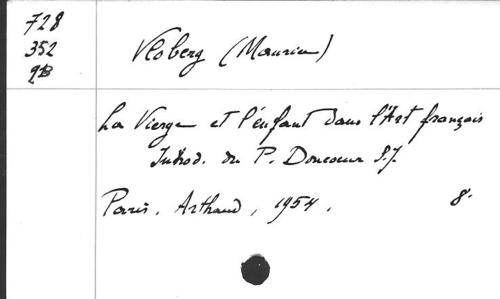 728
352
2B
Vloberg (Maurice)
La Vierge et l'enfant dans l'Art français
Introd. du P. Doncoeur S.J.
Paris, Arthaud, 1954. 8°